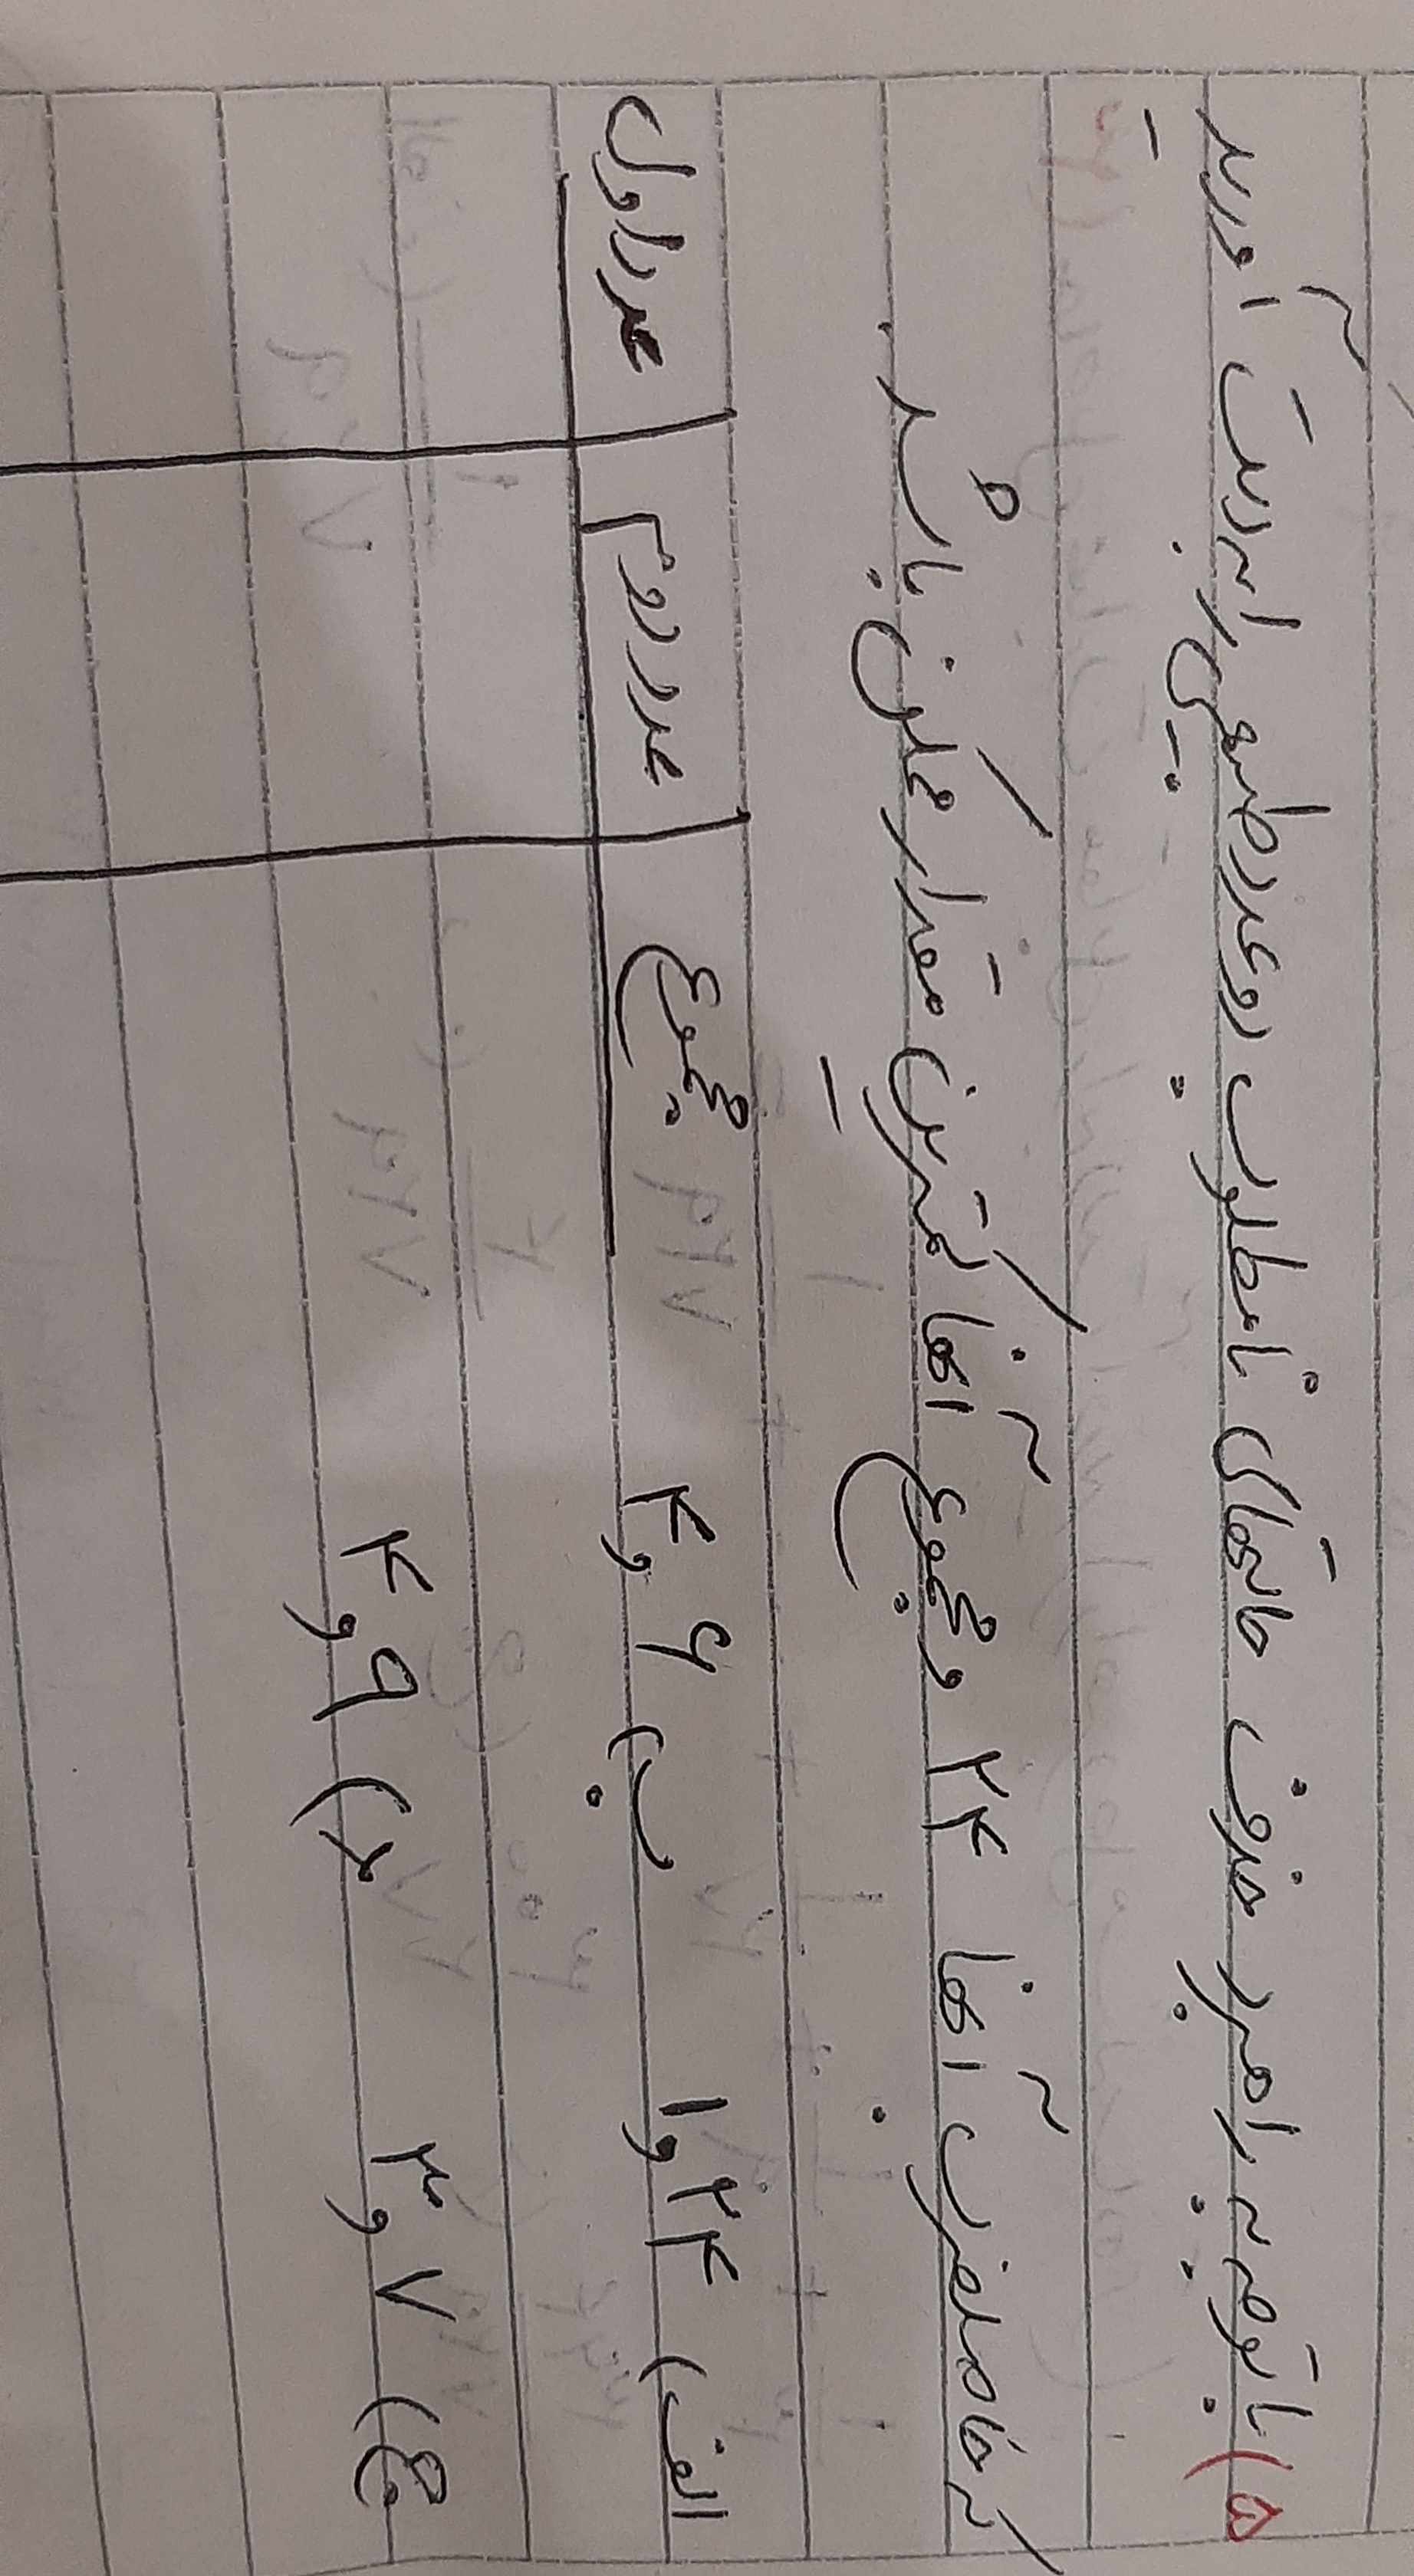 ۵) با توجه به راهبرد حذف حالتهای نامطلوب دو عدد طبیعی را به دست آورید
که حاصلضرب آنها ۲۴ و مجموع آنها کمترین مقدار ممکن باشد.
الف) ۲۴ و ۱ ب) ۶ و ۴
ج) ۷ و ۳ د) ۹ و ۴
عدد اول عدد دوم مجموع